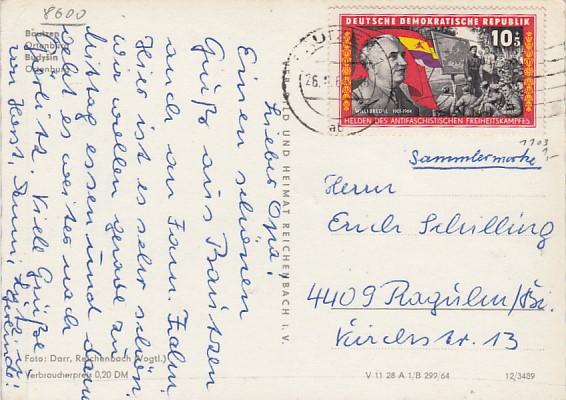 8600
Bautzen
Ortenburg
Budyšin
Ortenburg
Lieber Opa!
Einen schönen
Gruß aus Bautzen
auch an Fam. Fralin.
Hier ist es sehr schön.
wir wollen gerade zu
Mittag essen und dann
geht es weiter nach
Görlitz. Viele Grüße
von Horst,
Foto: Darr, Reichenbach (Vogtl.)
Verbraucherpreis 0,20 DM
VERLAG BILD UND HEIMAT REICHENBACH I. V.
DEUTSCHE DEMOKRATISCHE REPUBLIK
10+5
WILLI BREDEL 1901-1964
HELDEN DES ANTIFASCHISTISCHEN FREIHEITSKAMPFES
1103
1,-
Sammlermarke
Herrn
Erich Schilling
4409 Raguhn/Bz.
Kirchstr. 13
V 11 28 A 1/B 299/64
12/3489